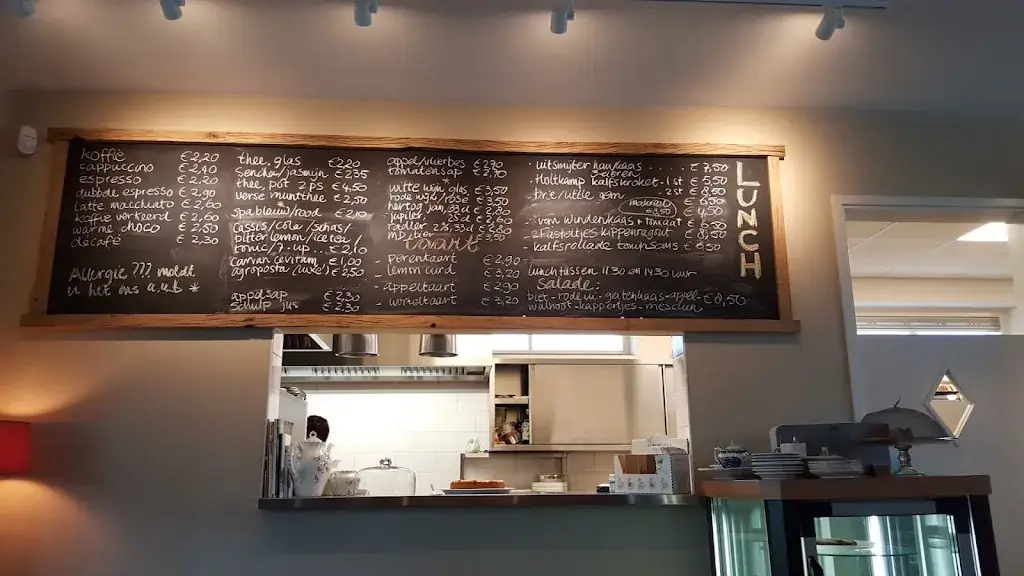 koffie €2,20
cappuccino €2,40
espresso €2,20
dubbele espresso €2,90
latte macchiato €2,60
koffie verkeerd €2,60
warme choco €2,50
decafé €2,30
Allergie ??? meldt
u het ons a.u.b *
thee, glas €2,20
sencha/jasmijn €2,35
thee, pot 2 ps €4,50
verse muntthee €2,50
spa blauw/rood €2,10
cassis/cola/sinas/
bitter lemon/icetea
€1,00
agroposta (luxe) €2,50
appelsap €2,30
schulp jus €2,30
appel/vlierbes €2,70
tomatensap €2,70
witte wijn, glas €3,50
rode wijn/rosé €3,50
hertog jan
jupiler
radler
taart
- perentaart €2,90
- lemon curd €3,20
- appeltaart €2,90
- worteltaart €3,20
LUNCH
· uitsmijter ham/kaas €7,50
· Holtkamp kalfskroket · 1st €5,50
· van windenkaas + tomaat
· 2 pasteitjes kippenragout
· kalfsrollade tonijnsaus €8,50
lunch tussen 11.30 en 14.30 uur
Salade:
biet-rode ui-geitenkaas-appel- €8,50
walnoot-kappertjes-mesclun